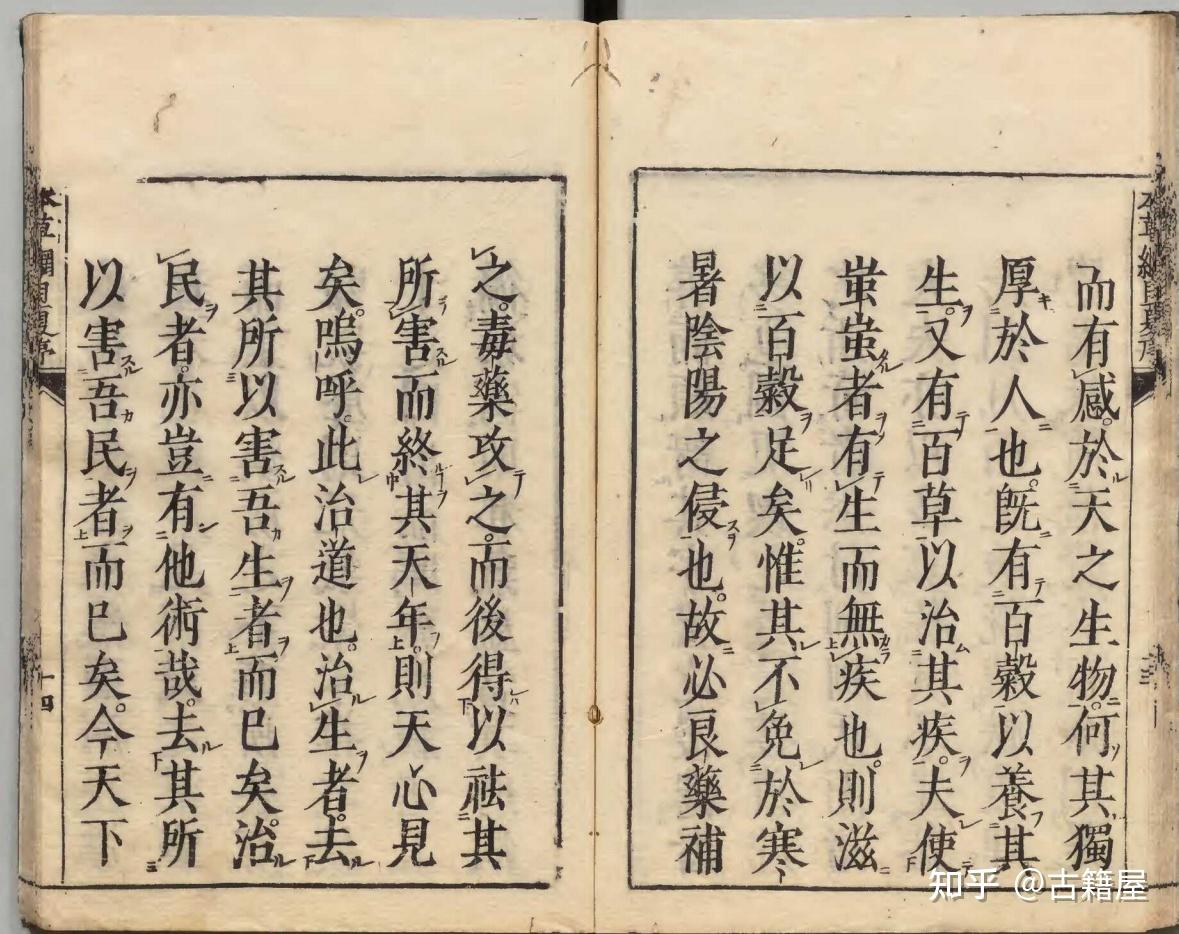 而有感於天之生物何其獨
厚於人也。既有百穀以養其
生。又有百草以治其疾。夫使
蚩蚩者有生而無疾也。則滋
以百穀足矣。惟其不免於寒
暑陰陽之侵也。故必良藥補
之毒藥攻之。而後得以祛其
所害而終其天年。則天心見
矣。嗚呼。此治道也。治生者。去
其所以害吾生者而已矣。治
民者。亦豈有他術哉。去其所
以害吾民者而已矣。今天下
十四
知乎 @古籍屋